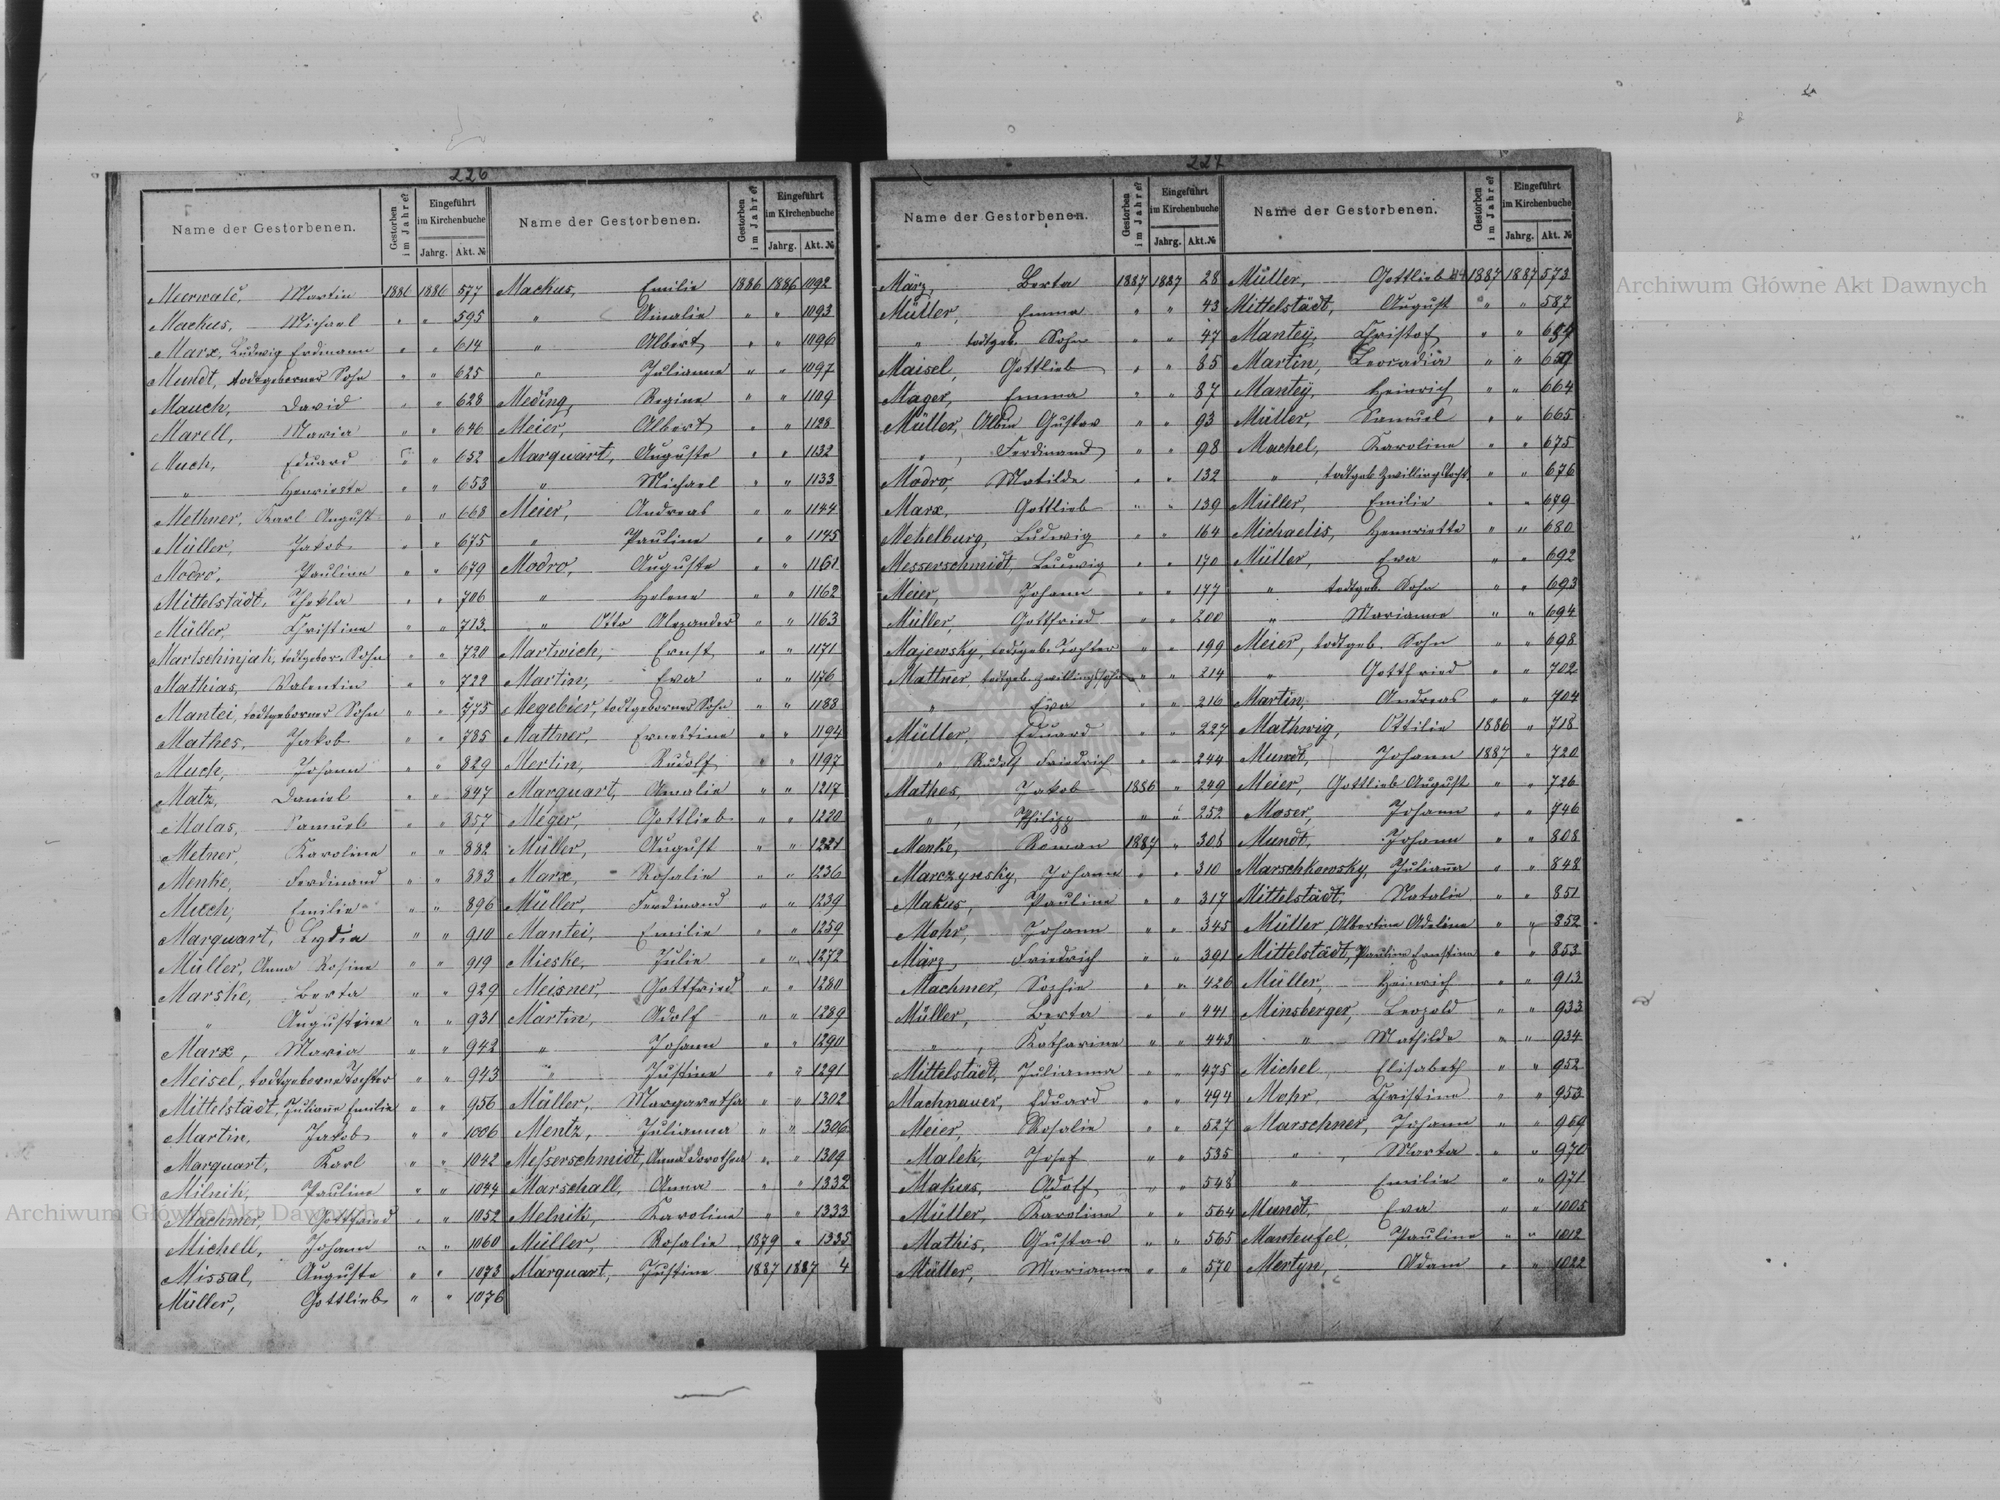 226
Name der Gestorbenen.
Gestorben im Jahre?
Eingeführt im Kirchenbuche
Jahrg.
Akt. №
Meerwald, Martin 1886 1886 577
Mackus, Michael " " 595
Marx, Ludwig Erdmann " " 614
Mundt, todtgeborner Sohn " " 625
Mauch, David " " 628
Marell, Maria " " 646
Much, Eduard " " 652
" Henriette " " 653
Methner, Karl August " " 668
Müller, Jakob " " 675
Modro, Pauline " " 679
Mittelstädt, Thekla " " 706
Müller, Christine " " 713
Martschinjak, todtgebor. Sohn " " 720
Mathias, Valentin " " 722
Mantei, todtgeborner Sohn " " 775
Mathes, Jakob " " 785
Much, Johann " " 829
Matz, Daniel " " 847
Malas, Samuel " " 857
Metner, Karoline " " 882
Menke, Ferdinand " " 883
Much, Emilie " " 896
Marquart, Lydia " " 910
Müller, Anna Rosine " " 919
Marske, Berta " " 929
" Augustine " " 931
Marx, Maria " " 942
Meisel, todtgeborne Tochter " " 943
Mittelstädt, Juliane Emilie " " 956
Martin, Jakob " " 1006
Marquart, Karl " " 1042
Milnik, Pauline " " 1044
Machmer, Gottfried " " 1052
Michell, Johann " " 1060
Missal, Auguste " " 1073
Müller, Gottlieb " " 1076
Name der Gestorbenen.
Gestorben im Jahre?
Eingeführt im Kirchenbuche
Jahrg.
Akt. №
Mackus, Emilie 1886 1886 1092
" Amalie " " 1093
" Albert " " 1096
" Julianne " " 1097
Meding, Regine " " 1109
Meier, Albert " " 1128
Marquart, Auguste " " 1132
" Michael " " 1133
Meier, Andreas " " 1144
" Pauline " " 1145
Modro, Auguste " " 1161
" Helene " " 1162
" Otto Alexander " " 1163
Martwich, Ernst " " 1171
Martin, Eva " " 1176
Megebier, todtgeborner Sohn " " 1188
Mattner, Ernestine " " 1194
Mertin, Rudolf " " 1197
Marquart, Amalie " " 1217
Meger, Gottlieb " " 1220
Müller, August " " 1221
Marx, Rosalie " " 1236
Müller, Ferdinand " " 1239
Mantei, Emilie " " 1259
Mieske, Julie " " 1272
Meisner, Gottfried " " 1280
Martin, Adolf " " 1289
" Johann " " 1290
" Justine " " 1291
Müller, Margaretha " " 1302
Mentz, Julianna " " 1306
Messerschmidt, Anna Dorothea " " 1309
Marschall, Anna " " 1332
Melnik, Karoline " " 1333
Müller, Rosalie 1879 " 1335
Marquart, Justine 1887 1887 4
227
Name der Gestorbenen.
Gestorben im Jahre?
Eingeführt im Kirchenbuche
Jahrg.
Akt. №
März, Berta 1887 1887 28
Müller, Emma " " 43
" todtgeb. Sohn " " 47
Maisel, Gottlieb " " 85
Mager, Emma " " 87
Müller, Albin Gustav " " 93
" , Ferdinand " " 98
Modro, Matilde " " 132
Marx, Gottlieb " " 139
Mekelburg, Ludwig " " 164
Messerschmidt, Ludwig " " 170
Meier, Johann " " 177
Müller, Gottfried " " 200
Majewsky, todtgeb. Tochter " " 199
Mattner, todtgeb. Zwillingssohn " " 214
" Eva " " 216
Müller, Eduard " " 227
" Rudolf Friedrich " " 244
Mathes, Jakob 1886 " 249
" , Philipp " " 252
Menke, Roman 1887 " 308
Marczynsky, Johann " " 310
Makus, Pauline " " 317
Mohr, Johann " " 345
März, Friedrich " " 391
Machmer, Sophie " " 426
Müller, Berta " " 441
" , Katharine " " 443
Mittelstädt, Julianna " " 475
Machnauer, Eduard " " 494
Meier, Rosalie " " 527
Malek, Josef " " 535
Makus, Adolf " " 548
Müller, Karoline " " 564
Mathis, Gustav " " 565
Müller, Marianna " " 570
Name der Gestorbenen.
Gestorben im Jahre?
Eingeführt im Kirchenbuche
Jahrg.
Akt. №
Müller, Gottlieb 1887 1887 573
Mittelstädt, August " " 587
Mantey, Christof " " 654
Martin, Leocadia " " 659
Mantey, Heinrich " " 664
Müller, Samuel " " 665
Machel, Karoline " " 675
" , todtgeb. Zwillingstocht. " " 676
Müller, Emilie " " 679
Michaelis, Hennriette " " 680
Müller, Eva " " 692
" todtgeb. Sohn " " 693
" Marianne " " 694
Meier, todtgeb. Sohn " " 698
" Gottfried " " 702
Martin, Andreas " " 704
Mathwig, Ottilie 1886 " 718
Mundt, Johann 1887 " 720
Meier, Gottlieb August " " 726
Moser, Johann " " 746
Mundt, Johann " " 808
Marschkowsky, Julianna " " 848
Mittelstädt, Natalie " " 851
Müller, Albertine Adeline " " 852
Mittelstädt, Pauline Ernstine " " 853
Müller, Heinrich " " 913
Minsberger, Leopold " " 933
" Mathilde " " 934
Michel, Elisabeth " " 952
Mohr, Christine " " 953
Marschner, Johann " " 969
" , Marta " " 970
" Emilie " " 971
Mundt, Eva " " 1005
Manteufel, Pauline " " 1012
Mertyn, Adam " " 1022
Archiwum Główne Akt Dawnych
Archiwum Główne Akt Dawnych